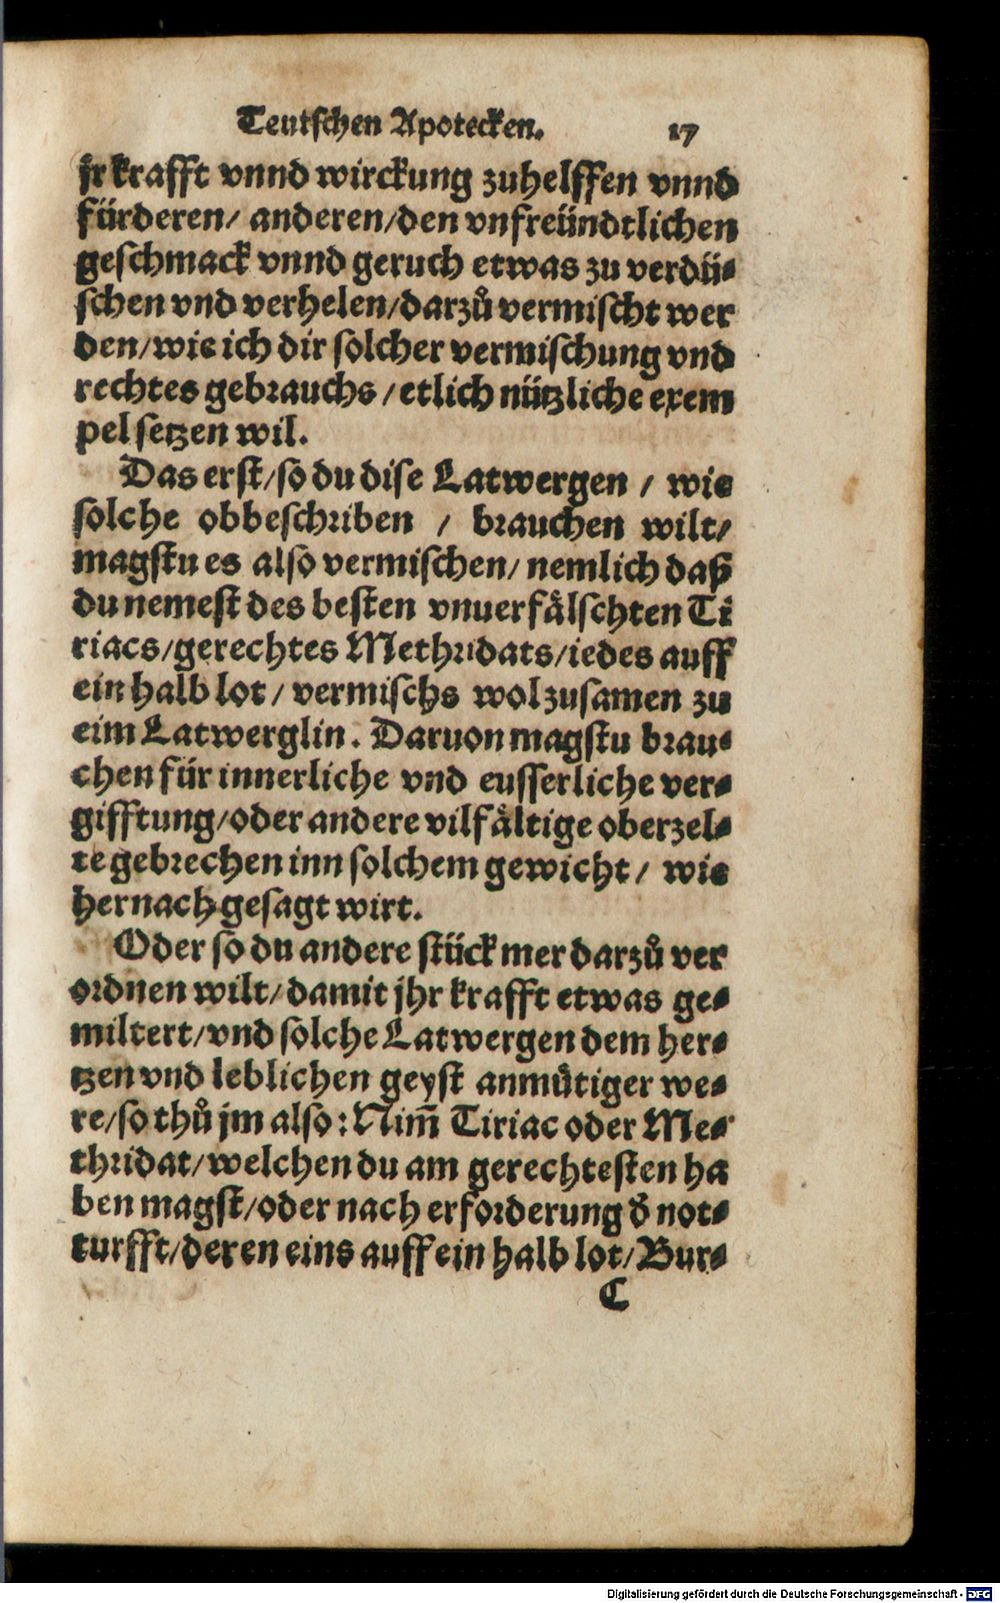 Teutschen Apotecken. 17
jr krafft vnnd wirckung zuhelffen vnnd
fürderen/ anderen/den vnfreündtlichen
geschmack vnnd geruch etwas zu verdü-
schen vnd verhelen/darzů vermischt wer
den/wie ich dir solcher vermischung vnd
rechtes gebrauchs/etlich nützliche exem
pel setzen wil.
Das erst/so du dise Latwergen / wie
solche obbeschriben / brauchen wilt/
magstu es also vermischen/nemlich daß
du nemest des besten vnuerfälschten Ti
riacs/gerechtes Methridats/iedes auff
ein halb lot/ vermischs wol zusamen zu
eim Latwerglin. Daruon magstu brau-
chen für innerliche vnd eusserliche ver-
gifftung/oder andere vilfältige oberzel-
te gebrechen inn solchem gewicht/ wie
hernach gesagt wirt.
Oder so du andere stück mer darzů ver
ordnen wilt/damit jhr krafft etwas ge-
miltert/vnd solche Latwergen dem her-
tzen vnd leblichen geyst anmütiger we-
re/so thů jm also: Nim̄ Tiriac oder Me-
thridat/welchen du am gerechtesten ha
ben magst/oder nach erforderung đ not-
turfft/deren eins auff ein halb lot/Bur-
C
Digitalisierung gefördert durch die Deutsche Forschungsgemeinschaft - DFG